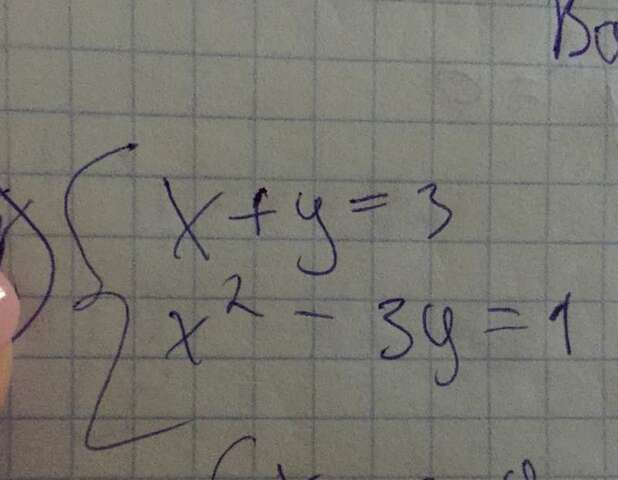 x + y = 3
x² - 3y = 1